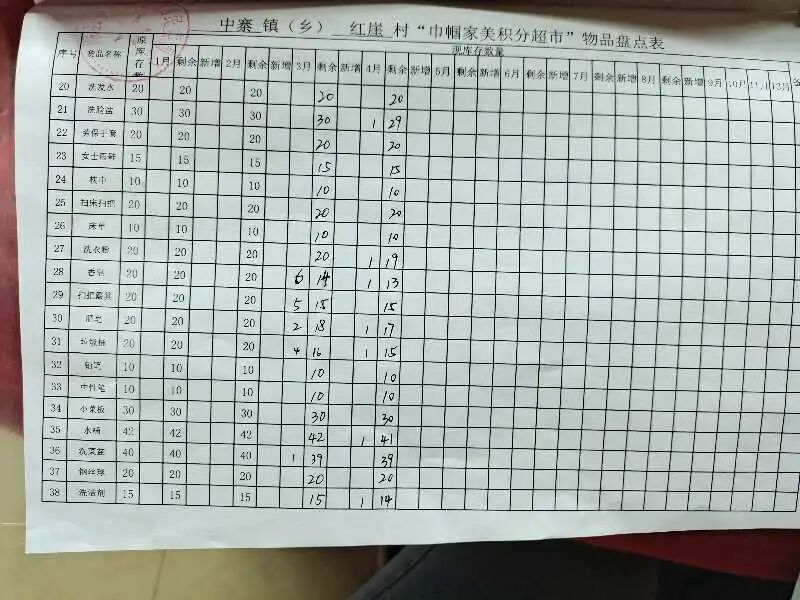 中寨 镇（乡） 红崖 村“巾帼家美积分超市”物品盘点表
现库存数量
序号 货品名称 原库存数 1月 剩余 新增 2月 剩余 新增 3月 剩余 新增 4月 剩余 新增 5月 剩余 新增 6月 剩余 新增 7月 剩余 新增 8月 剩余 新增 9月 10月 11月 12月
20 洗发水 20 20 20 20 20
21 洗脸盆 30 30 30 30 1 29
22 劳保手套 20 20 20 20 20
23 女士 15 15 15 15 15
24 枕巾 10 10 10 10 10
25 扫床扫把 20 20 20 20 20
26 床单 10 10 10 10 10
27 洗衣粉 20 20 20 20 1 19
28 香皂 20 20 20 6 14 1 13
29 扫把簸箕 20 20 20 5 15 15
30 肥皂 20 20 20 2 18 1 17
31 垃圾桶 20 20 20 4 16 1 15
32 铅笔 10 10 10 10 10
33 中性笔 10 10 10 10 10
34 小菜板 30 30 30 30 30
35 水桶 42 42 42 42 1 41
36 洗菜盆 40 40 40 1 39 39
37 钢丝球 20 20 20 20 20
38 洗洁剂 15 15 15 15 1 14